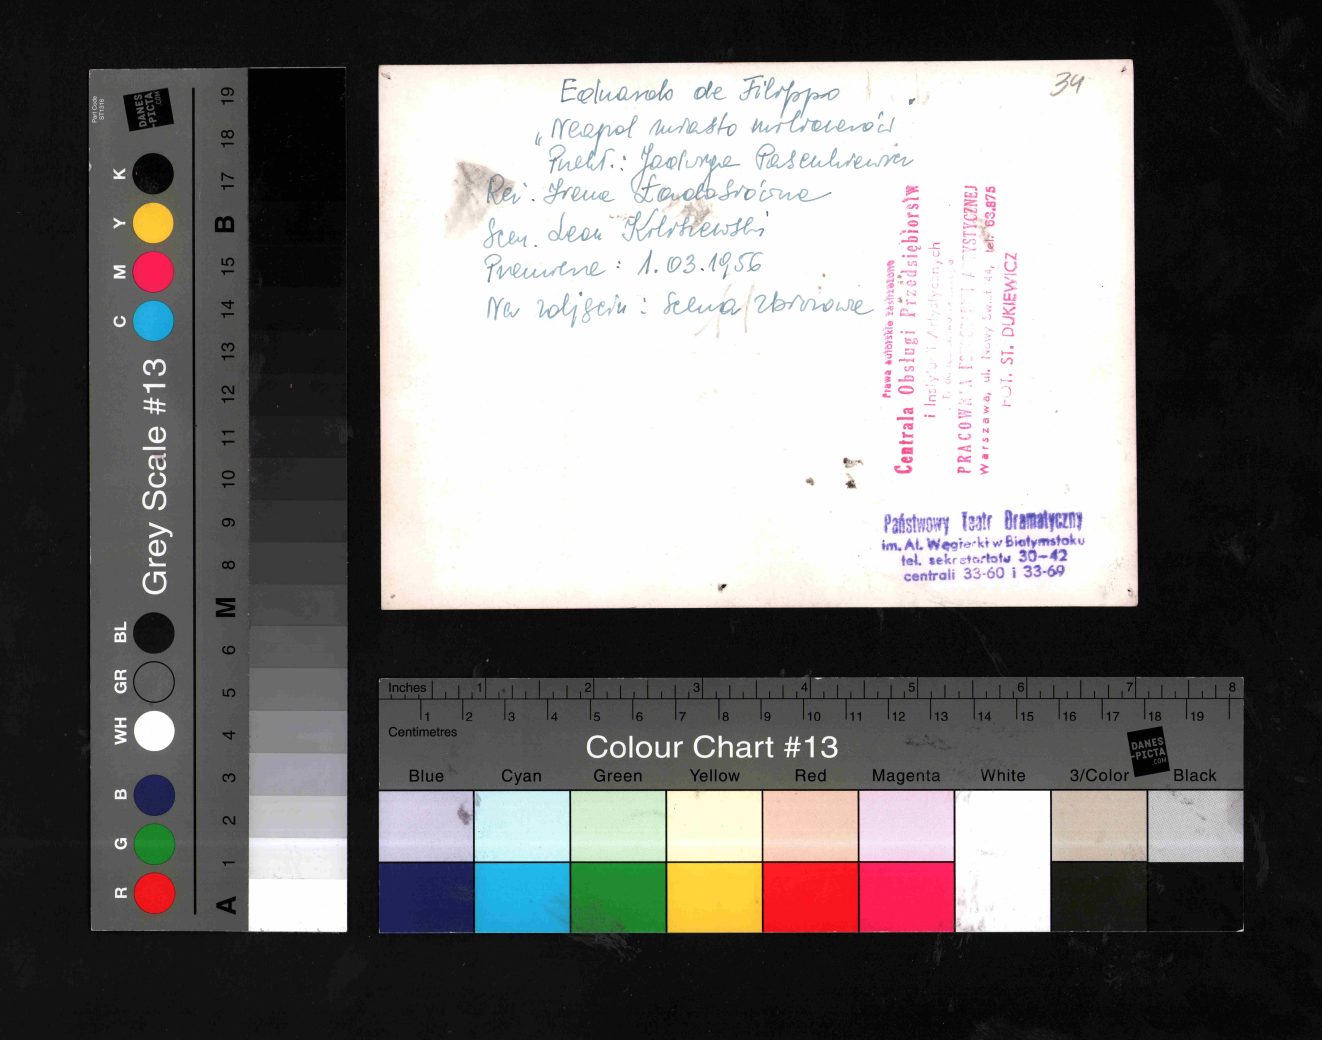 Eduardo de Filippo
34
„Neapol miasto milionerów
Przekł.: Jadwiga Pasenkiewicz
Reż. Irena Ładosiówna
Scen. Leon Kołoszewski
Premiera: 1.03.1956
Na zdjęciu: Scena zbiorowa
Prawa autorskie zastrzeżone
Centrala Obsługi Przedsiębiorstw
i Instytucji Artystycznych
PRACOWNIA FOTOGRAFII ARTYSTYCZNEJ
Warszawa, ul. Nowy Świat 44, tel. 63.875
FOT. ST. DUKIEWICZ
Państwowy Teatr Dramatyczny
im. Al. Węgierki w Białymstoku
tel. sekretariatu 30-42
centrali 33-60 i 33-69
Part Code
ST1316
DANES
-PICTA
.COM
Grey Scale #13
R G B WH GR BL C M Y K
A 1 2 3 4 5 6 M 8 9 10 11 12 13 14 15 B 17 18 19
Inches 1 2 3 4 5 6 7 8
1 2 3 4 5 6 7 8 9 10 11 12 13 14 15 16 17 18 19
Centimetres
Colour Chart #13
DANES
-PICTA
.COM
Blue Cyan Green Yellow Red Magenta White 3/Color Black